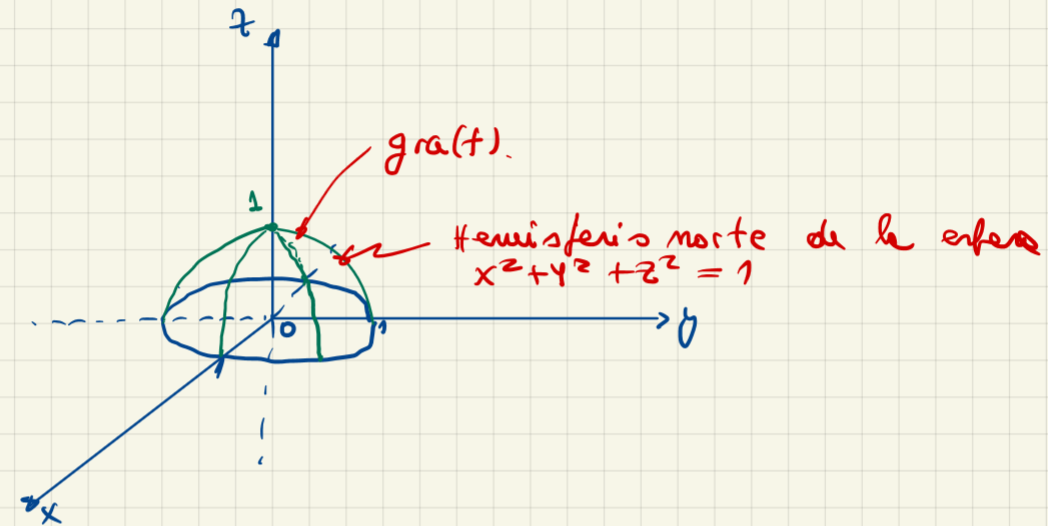 z
gra(f).
1
Hemisferio norte de la esfera
x² + y² + z² = 1
0
1
y
x